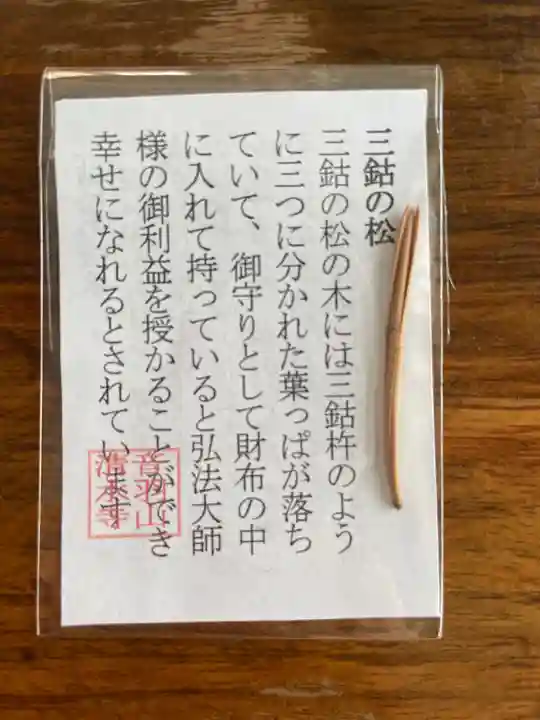 三鈷の松
三鈷の松の木には三鈷杵のよう
に三つに分かれた葉っぱが落ち
ていて、御守りとして財布の中
に入れて持っていると弘法大師
様の御利益を授かることができ
幸せになれるとされています
音羽山
清水寺